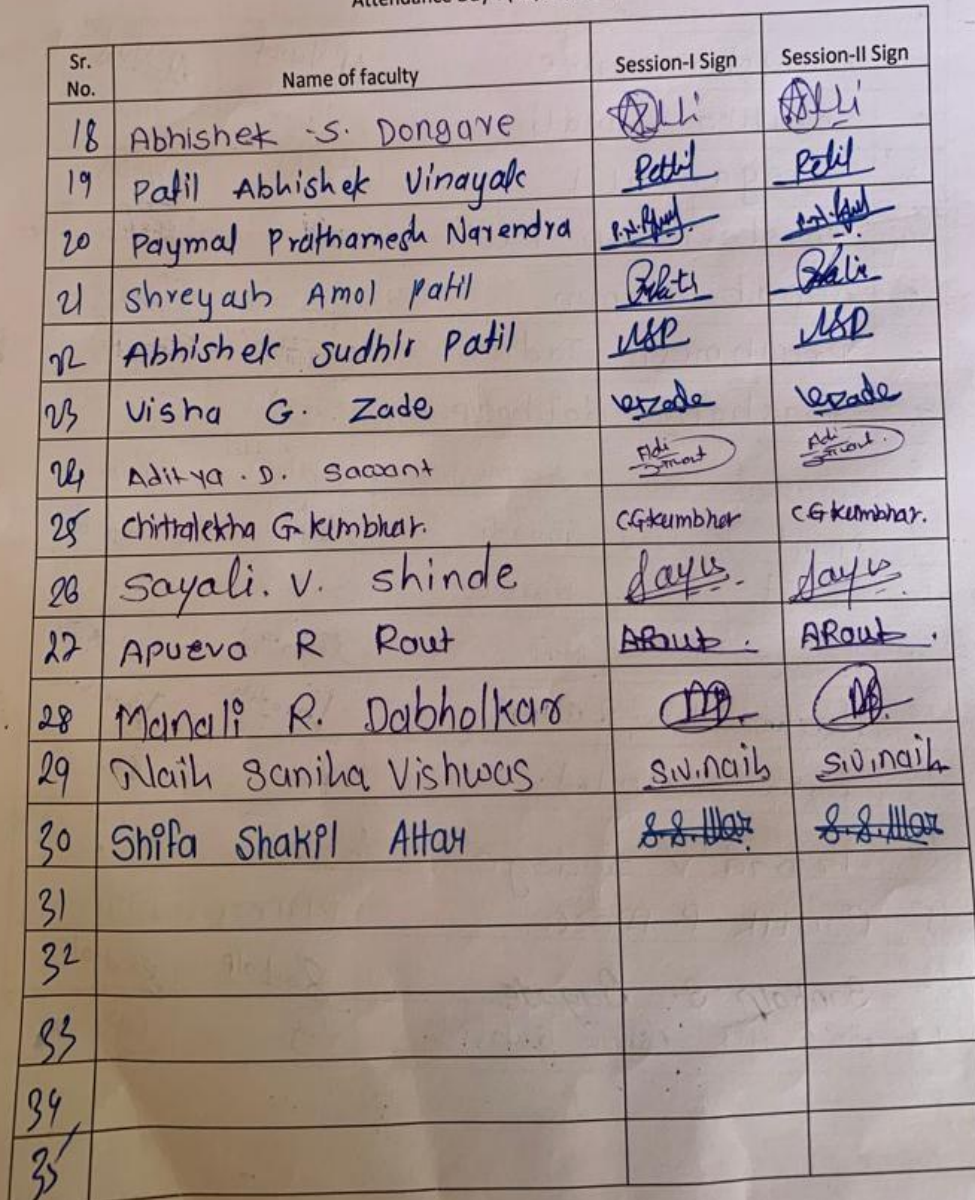 Sr. No. Name of faculty Session-I Sign Session-II Sign
18 Abhishek S. Dongare
19 Patil Abhishek Vinayak Patil Patil
20 Paymal Prathamesh Narendra
21 Shreyash Amol Patil
22 Abhishek Sudhir Patil ASP ASP
23 Visha G. Zade Vgzade Vgzade
24 Aditya . D. Sawant Adi Adi
25 Chitralekha G. Kumbhar. CGKumbhar CGKumbhar.
26 Sayali. V. Shinde
27 Apurva R Rout ARout . ARout .
28 Manali R. Dabholkar
29 Naik Sanika Vishwas S.V.naik S.V.naik
30 Shifa Shakil Attar S.S.Attar S.S.Attar
31
32
33
34
35